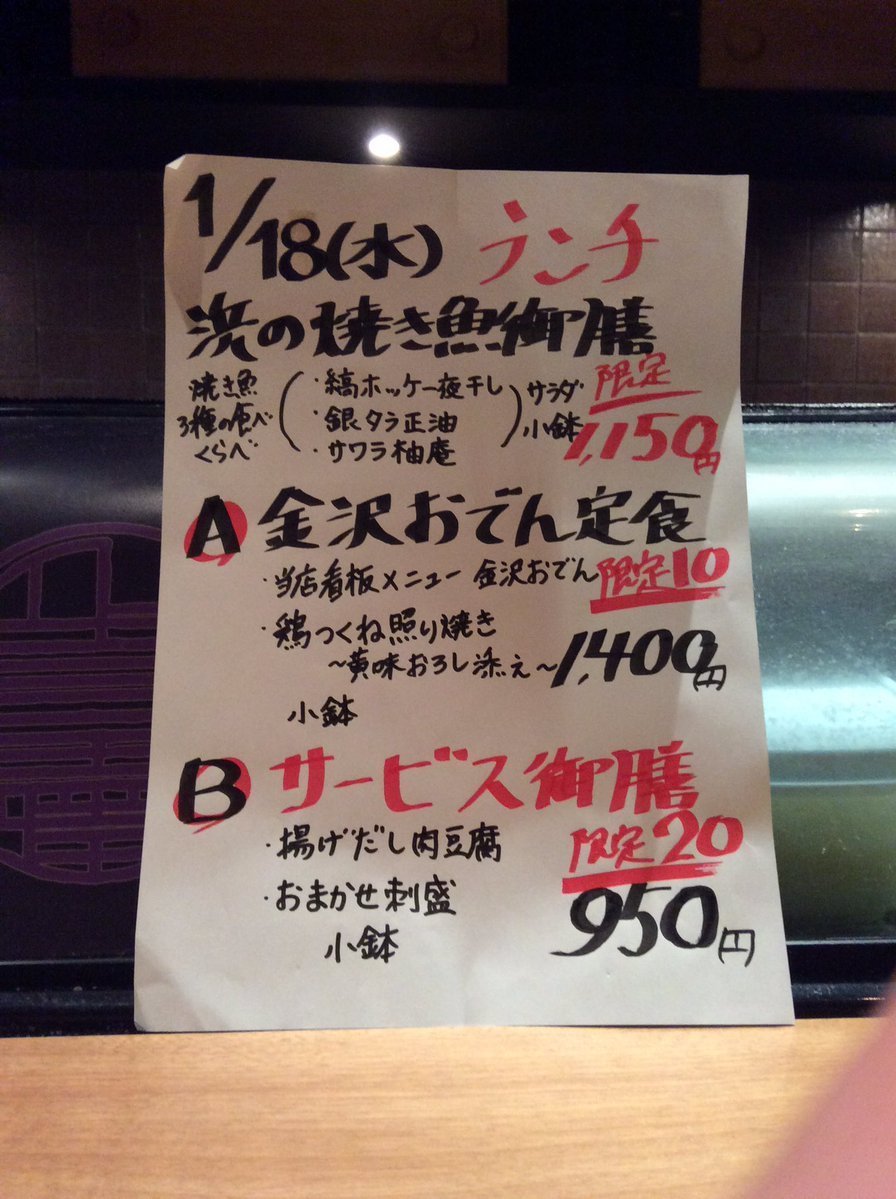 1/18(水) ランチ
浜の焼き魚御膳
焼き魚 3種の食べくらべ
・縞ホッケ一夜干し
・銀タラ正油
・サワラ柚庵
サラダ
小鉢
限定
1,150円
A 金沢おでん定食
・当店看板メニュー 金沢おでん
限定10
・鶏つくね照り焼き
〜黄味おろし添え〜
1,400円
小鉢
B サービス御膳
・揚げだし肉豆腐
限定20
・おまかせ刺盛
950円
小鉢